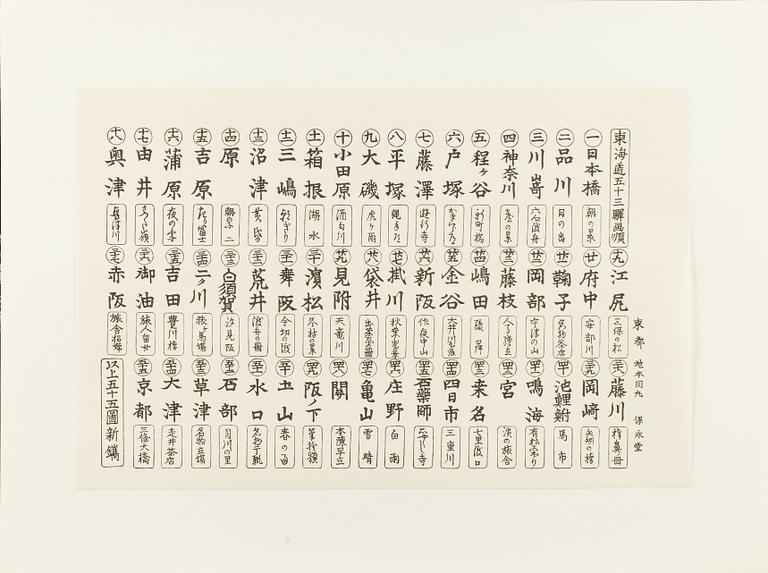 東海道五十三驛画順
一 日本橋 朝の景
二 品川 日の出
三 川嵜 六合渡舟
四 神奈川 臺の景
五 程ヶ谷 新町橋
六 戸塚
七 藤澤 遊行寺
八 平塚 縄手道
九 大磯 虎ヶ雨
十 小田原 酒匂川
十一 箱根 湖水
十二 三嶋 朝ぎり
十三 沼津 黄昏
十四 原 朝のふ二
十五 吉原 左り富士
十六 蒲原 夜の雪
十七 由井 さつた嶺
十八 奥津 興津川
十九 江尻 三保の松
廿 府中 安部川
廿一 鞠子 名物茶店
廿二 岡部 宇津の山
廿三 藤枝 人馬継立
廿四 嶋田 駿岸
廿五 金谷 大井川遠岸
廿六 新阪 佐夜中山
廿七 掛川 秋葉山遠景
廿八 袋井 出茶屋ノ圖
廿九 見附 天竜川
三十 濱松 冬枯の景
三十一 舞阪 今切の渡
三十二 荒井 渡舟の圖
三十三 白須賀 汐見阪
三十四 二タ川 猿ヶ馬場
三十五 吉田 豊川橋
三十六 御油 旅人留女
三十七 赤阪 旅舎招婦
三十八 藤川 棒鼻ノ圖
三十九 岡崎 矢矧の橋
四十 池鯉鮒 馬市
四十一 鳴海 有松しぼり
四十二 宮
四十三 桒名 七里渡口
四十四 四日市 三重川
四十五 石藥師 石やくし寺
四十六 庄野 白雨
四十七 亀山 雪晴
四十八 関 本陣早立
四十九 阪ノ下 筆捨嶺
五十 圡山 春の雨
五十一 水口 名物干瓢
五十二 石部 目川の里
五十三 草津 名物立場
五十四 大津 走井茶店
五十五 京都 三條大橋
以上五十五圖新鐫
東都 保永堂